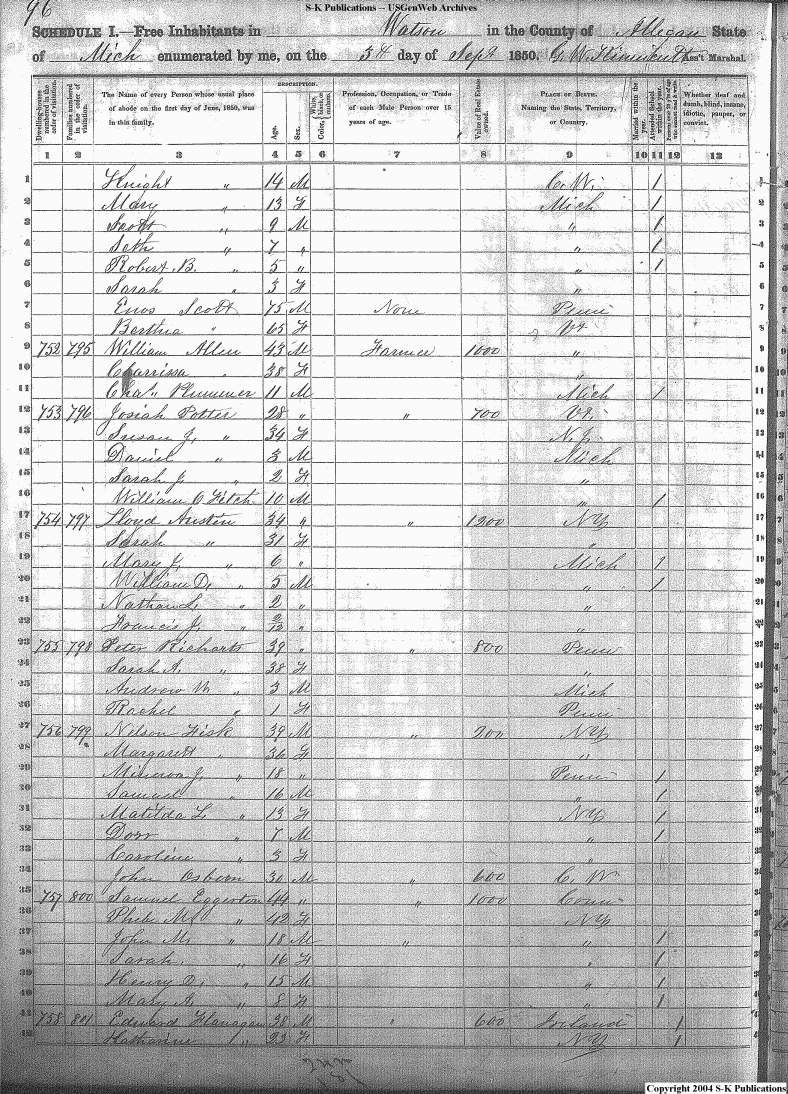 S-K Publications -- USGenWeb Archives
96
SCHEDULE I.—Free Inhabitants in Watson in the County of Allegan State
of Mich enumerated by me, on the 3d day of Sept 1850. G. W. Ass't Marshal.
Dwelling-houses numbered in the order of visitation.
Families numbered in the order of visitation.
The Name of every Person whose usual place of abode on the first day of June, 1850, was in this family.
DESCRIPTION.
Age.
Sex.
Color, White, black, or mulatto.
Profession, Occupation, or Trade of each Male Person over 15 years of age.
Value of Real Estate owned.
PLACE OF BIRTH. Naming the State, Territory, or Country.
Married within the year.
Attended School within the year.
Whether deaf and dumb, blind, insane, idiotic, pauper, or convict.
1 2 3 4 5 6 7 8 9 10 11 12 13
1 Knight " 14 M C. W. / 1
2 Mary " 13 F Mich / 2
3 Scott " 9 M " / 3
4 Seth " 7 " " / 4
5 Robert B. " 5 " " / 5
6 Sarah " 3 F " 6
7 Enos Scott 75 M None Penn 7
8 Berthia " 65 F Vt 8
9 752 795 William Allen 43 M Farmer 1000 " 9
10 Charrissa " 38 F " 10
11 Chas. Plummer 11 M Mich / 11
12 753 796 Josiah Potter 28 " " 700 Vt. 12
13 Susan J. " 34 F N.J. 13
14 Daniel " 3 M Mich 14
15 Sarah J. " 2 F " 15
16 William O Fitch 10 M " / 16
17 754 797 Lloyd Austin 34 " " 1200 NY 17
18 Sarah " 31 F " 18
19 Mary J. " 6 " Mich / 19
20 William D. " 5 M " / 20
21 Nathan L. " 2 " " 21
22 Francis J. " 2/12 " " 22
23 755 798 Peter Richarts 39 " " 800 Penn 23
24 Sarah A. " 38 F " 24
25 Andrew M. " 3 M Mich 25
26 Rachel " 1 F Penn 26
27 756 799 Nelson Fisk 39 M " 200 NY 27
28 Margarett " 36 F " 28
29 Minerva J. " 18 " Penn / 29
30 Samuel " 16 M " / 30
31 Matilda L " 13 F NY / 31
32 Dorr " 7 M " / 32
33 Caroline " 3 F " 33
34 John Osborn 30 M " 600 C. W 34
35 757 800 Samuel Eggerton 44 " " 1000 Conn 35
36 Phebe M. " 42 F NY 36
37 John M. " 18 M " " / 37
38 Sarah " 16 F " / 38
39 Henry D. " 15 M " / 39
40 Mary A. " 8 F " / 40
41 758 801 Edward Flanagan 38 M " 600 Ireland / 41
42 Katharine " 23 F NY / 42
Copyright 2004 S-K Publications